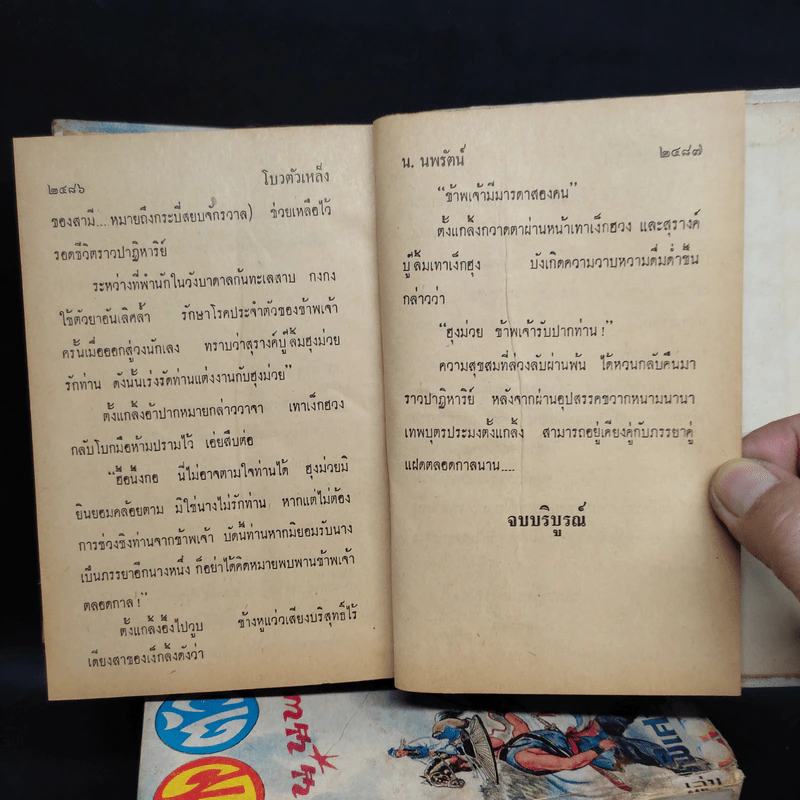 ๒๔๘๖ โบวตัวเหล็ง
ของสามี....หมายถึงกระบี่สยบจักรวาล) ช่วยเหลือไว้
รอดชีวิตราวปาฏิหาริย์
ระหว่างที่พำนักในวังบาดาลก้นทะเลสาบ กงกง
ใช้ตัวยาอันเลิศล้ำ รักษาโรคประจำตัวของข้าพเจ้า
ครั้นเมื่อออกสู่วงนักเลง ทราบว่าสุรางค์บู๊ลิ้มฮุงม่วย
รักท่าน ดังนั้นเร่งรัดท่านแต่งงานกับฮุงม่วย"
ตั้งแกล้งอ้าปากหมายกล่าววาจา เทาเง็กฮวง
กลับโบกมือห้ามปรามไว้ เอ่ยสืบต่อ
"ฮือนึ้งกอ นี่ไม่อาจตามใจท่านได้ ฮุงม่วยมิ
ยินยอมคล้อยตาม มิใช่นางไม่รักท่าน หากแต่ไม่ต้อง
การช่วงชิงท่านจากข้าพเจ้า บัดนี้ท่านหากมิยอมรับนาง
เป็นภรรยาอีกนางหนึ่ง ก็อย่าได้คิดหมายพบพานข้าพเจ้า
ตลอดกาล!"
ตั้งแกล้งอึ้งไปวูบ ข้างหูแว่วเสียงบริสุทธิ์ไร้
เดียงสาของเง็กล้งดังว่า
น. นพรัตน์ ๒๔๘๗
"ข้าพเจ้ามีมารดาสองคน"
ตั้งแกล้งกวาดตาผ่านหน้าเทาเง็กฮวง และสุรางค์
บู๊ลิ้มเทาเง็กฮุง บังเกิดความวาบหวามดื่มด่ำขึ้น
กล่าวว่า
"ฮุงม่วย ข้าพเจ้ารับปากท่าน!"
ความสุขสมที่ล่วงลับผ่านพ้น ได้หวนกลับคืนมา
ราวปาฏิหาริย์ หลังจากผ่านอุปสรรคขวากหนามนานา
เทพบุตรประมงตั้งแกล้ง สามารถอยู่เคียงคู่กับภรรยาคู่
แฝดตลอดกาลนาน....
จบบริบูรณ์